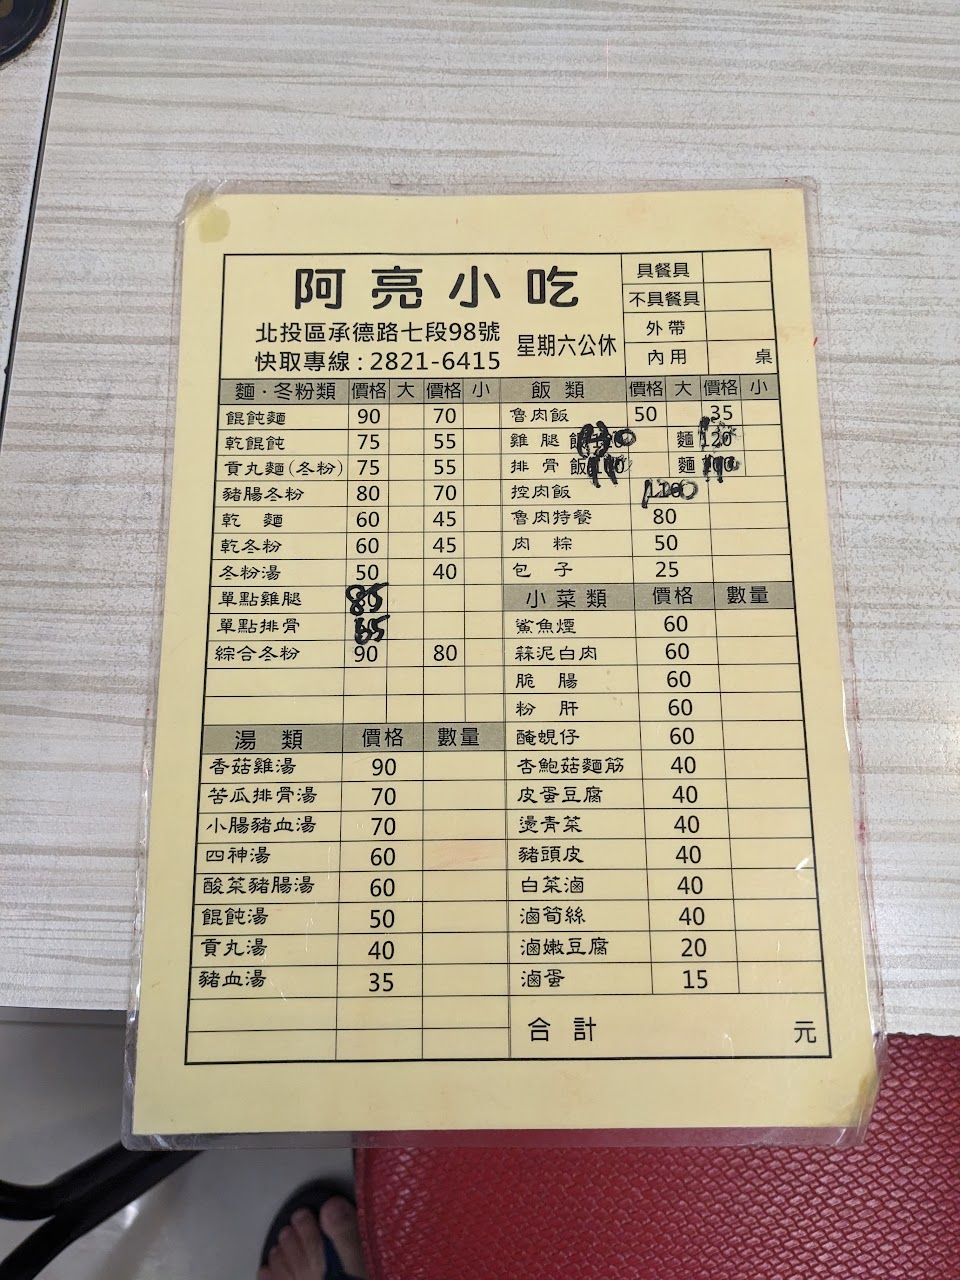 阿亮小吃
北投區承德路七段98號
快取專線：2821-6415
星期六公休
具餐具
不具餐具
外帶
內用 桌
麵·冬粉類 價格 大 價格 小
餛飩麵 90 70
乾餛飩 75 55
貢丸麵(冬粉) 75 55
豬腸冬粉 80 70
乾麵 60 45
乾冬粉 60 45
冬粉湯 50 40
單點雞腿
單點排骨
綜合冬粉 90 80
湯類 價格 數量
香菇雞湯 90
苦瓜排骨湯 70
小腸豬血湯 70
四神湯 60
酸菜豬腸湯 60
餛飩湯 50
貢丸湯 40
豬血湯 35
飯類 價格 大 價格 小
魯肉飯 50 35
雞腿飯 麵
排骨飯 麵
控肉飯
魯肉特餐 80
肉粽 50
包子 25
小菜類 價格 數量
鯊魚煙 60
蒜泥白肉 60
脆腸 60
粉肝 60
醃蜆仔 60
杏鮑菇麵筋 40
皮蛋豆腐 40
燙青菜 40
豬頭皮 40
白菜滷 40
滷筍絲 40
滷嫩豆腐 20
滷蛋 15
合計 元